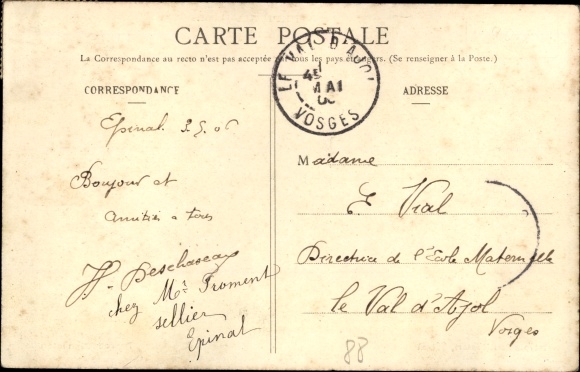 CARTE POSTALE
La Correspondance au recto n'est pas acceptée par tous les pays étrangers. (Se renseigner à la Poste.)
CORRESPONDANCE
ADRESSE
LE VAL D'AJOL
MAI
VOSGES
Epinal 2.5.06
Bonjour et
amitiés a tous
Deschaseaux
chez Mr Froment
sellier
Epinal
Madame
E Vial
Directrice de l'Ecole Maternelle
le Val d'Ajol
Vosges
88